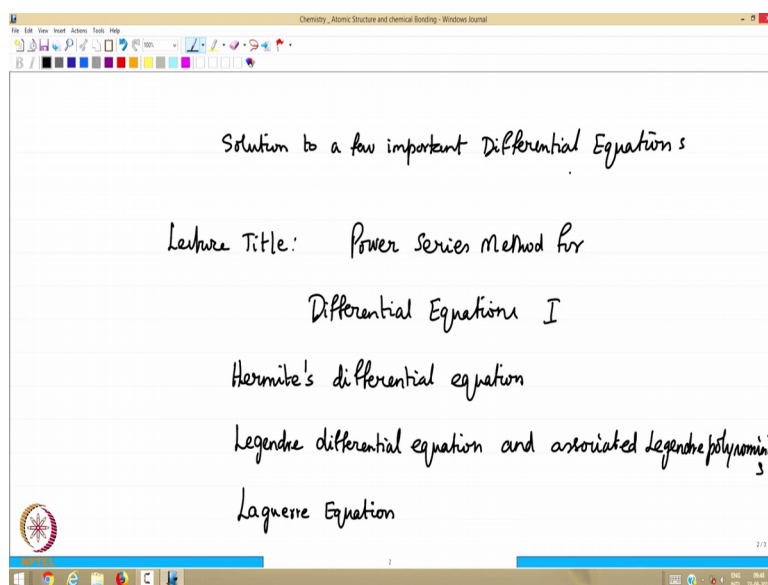 Chemistry _ Atomic Structure and chemical Bonding - Windows Journal
File Edit View Insert Actions Tools Help
100%
B I
Solution to a few important Differential Equations
Lecture Title: Power Series Method for
Differential Equations I
Hermite's differential equation
Legendre differential equation and associated Legendre polynomials
Laguerre Equation
NPTEL
2/3
2
ENG 09:40